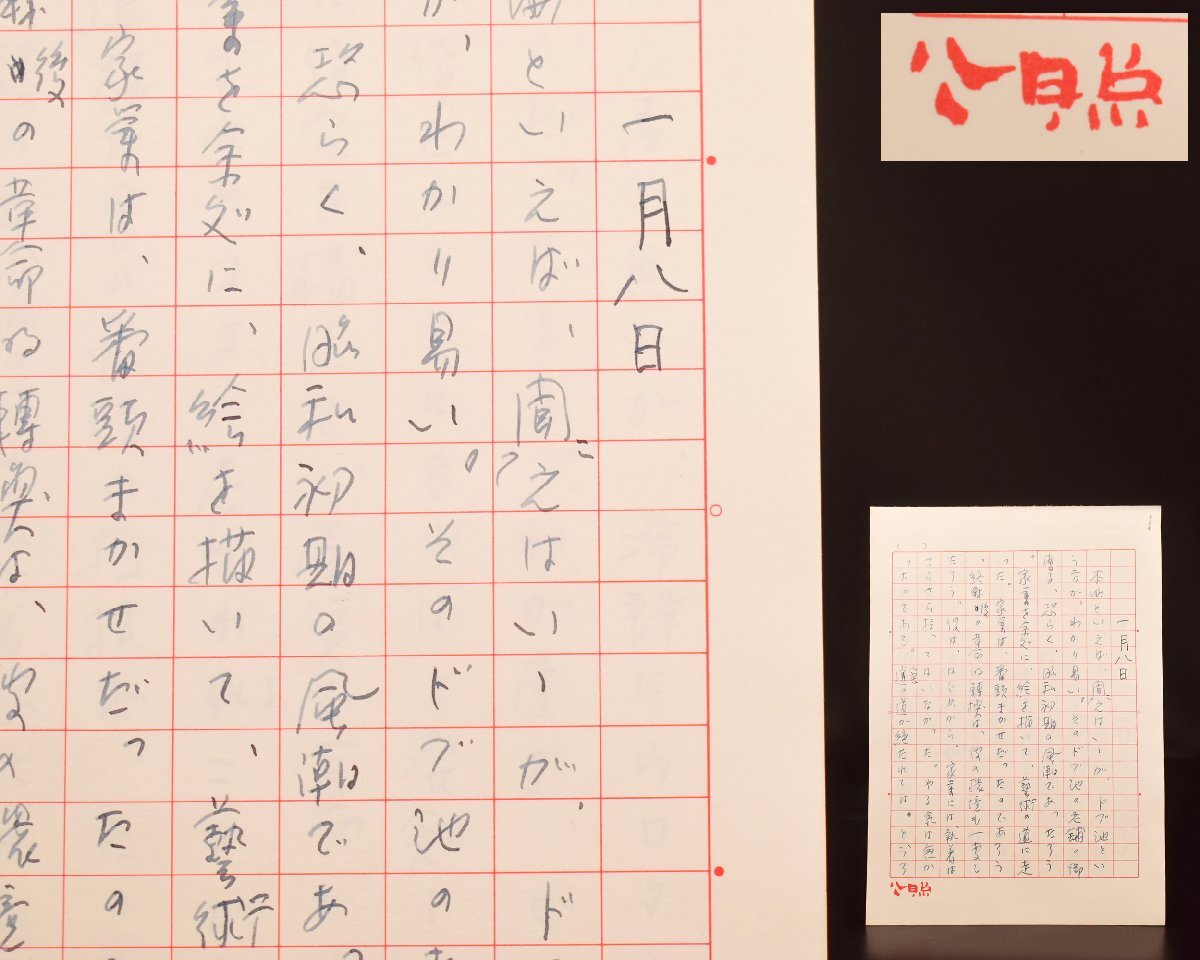 一月八日
といえば、聞えはいゝが、ド
が、わかり易い。そのドブ池の
恐らく、昭和初期の風潮であ
を余処に、絵を描いて、藝術
家業は、番頭まかせだったの
後の革命的轉換は、
公照
一月八日
といえば、聞えはいゝが、ドブ池とい
う方が、わかり易い。そのドブ池の老舗の御
恐らく、昭和初期の風潮であったろう
。家業を余処に、絵を描いて、藝術の道に走
った。家業は、番頭まかせだったのであろう
。終戦後の革命的轉換は、彼の環境も一変し
たろう。彼は、はじめから、家業には執着は
さらさら持ってはいなかった。やる気は無か
ったのである。の道が絶たれては。
公照